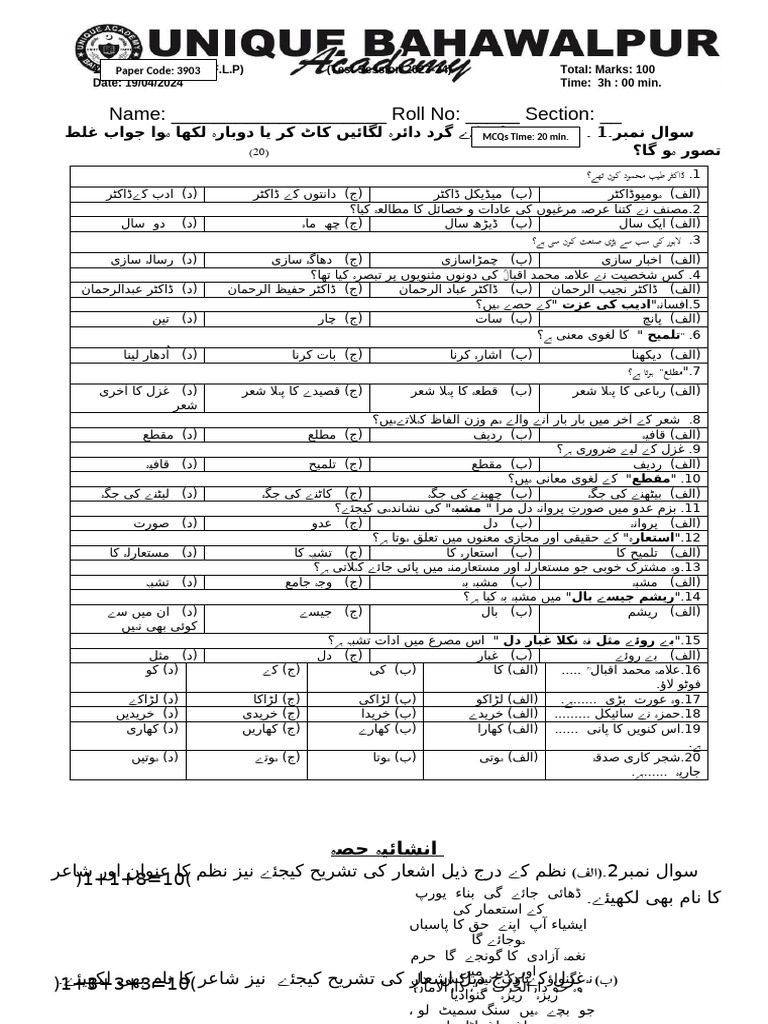 UNIQUE BAHAWALPUR
Academy
Paper Code: 3903
Total: Marks: 100
Date: 19/04/2024
Time: 3h : 00 min.
Name: Roll No: Section:
سوال نمبر۔1 ۔ گرد دائرہ لگائیں کاٹ کر یا دوبارہ لکھا ہوا جواب غلط
MCQs Time: 20 min.
تصور ہو گا؟ (20)
1. ڈاکٹر طیب محمود کون تھے؟
(الف) ہومیوڈاکٹر (ب) میڈیکل ڈاکٹر (ج) دانتوں کے ڈاکٹر (د) ادب کےڈاکٹر
2.مصنف نے کتنا عرصہ مرغیوں کی عادات و خصائل کا مطالعہ کیا؟
(الف) ایک سال (ب) ڈیڑھ سال (ج) چھ ماہ (د) دو سال
3. لاہور کی سب سے بڑی صنعت کون سی ہے؟
(الف) اخبار سازی (ب) چمڑاسازی (ج) دھاگہ سازی (د) رسالہ سازی
4. کس شخصیت نے علامہ محمد اقبالؒ کی دونوں مثنویوں پر تبصرہ کیا تھا؟
(الف) ڈاکٹر نجیب الرحمان (ب) ڈاکٹر عباد الرحمان (ج) ڈاکٹر حفیظ الرحمان (د) ڈاکٹر عبدالرحمان
5.افسانہ"ادیب کی عزت "کے حصے ہیں؟
(الف) پانچ (ب) سات (ج) چار (د) تین
6. "تلمیح " کا لغوی معنی ہے؟
(الف) دیکھنا (ب) اشارہ کرنا (ج) بات کرنا (د) اُدھار لینا
7."مطلع" ہوتا ہے؟
(الف) رباعی کا پہلا شعر (ب) قطعہ کا پہلا شعر (ج) قصیدے کا پہلا شعر (د) غزل کا آخری
شعر
8. شعر کے آخر میں بار بار آنے والے ہم وزن الفاظ کہلاتےہیں؟
(الف) قافیہ (ب) ردیف (ج) مطلع (د) مقطع
9. غزل کے لیے ضروری ہے؟
(الف) ردیف (ب) مقطع (ج) تلمیح (د) قافیہ
10. "مقطع" کے لغوی معانی ہیں؟
(الف) بیٹھنے کی جگہ (ب) چھپنے کی جگہ (ج) کاٹنے کی جگہ (د) لیٹنے کی جگہ
11. بزم عدو میں صورتِ پروانہ دل مرا " مشبہ" کی نشاندہی کیجئے؟
(الف) پروانہ (ب) دل (ج) عدو (د) صورت
12."استعارہ" کے حقیقی اور مجازی معنوں میں تعلق ہوتا ہے؟
(الف) تلمیح کا (ب) استعارہ کا (ج) تشبہ کا (د) مستعارلہ کا
13.وہ مشترک خوبی جو مستعارلہ اور مستعارمنہ میں پائی جائے کہلاتی ہے؟
(الف) مشبہ (ب) مشبہ بہ (ج) وجہ جامع (د) تشبہ
14."ریشم جیسے بال" میں مشبہ بہ کیا ہے؟
(الف) ریشم (ب) بال (ج) جیسے (د) ان میں سے
کوئی بھی نہیں
15."بے روئے مثل نہ نکلا غبار دل " اس مصرع میں ادات تشبہ ہے؟
(الف) بے روئے (ب) غبار (ج) دل (د) مثل
16.علامہ محمد اقبال ؒ ..... (الف) کا (ب) کی (ج) کے (د) کو
فوٹو لاؤ۔
17.وہ عورت بڑی ......ہے۔ (الف) لڑاکو (ب) لڑاکی (ج) لڑاکا (د) لڑاکے
18.حمزہ نے سائیکل ......... (الف) خریدے (ب) خریدا (ج) خریدی (د) خریدیں
19.اس کنویں کا پانی ...... (الف) کھارا (ب) کھارے (ج) کھاریں (د) کھاری
ہے۔
20.شجر کاری صدقہ (الف) ہوتی (ب) ہوتا (ج) ہوتے (د) ہوتیں
جاریہ ......ہے۔
انشائیہ حصہ
سوال نمبر2۔(الف) نظم کے درج ذیل اشعار کی تشریح کیجئے نیز نظم کا عنوان اور شاعر
کا نام بھی لکھیئے۔ )1+1+8=10(
ڈھائی جائے گی بناء یورپ
کے استعمار کی
ایشیاء آپ اپنے حق کا پاسباں
ہوجائے گا
نغمہ آزادی کا گونجے گا حرم
اور دیر میں
(ب) غزل کے درج ذیل اشعار کی تشریح کیجئے نیز شاعر کا نام بھی لکھیئے۔
)1+3+3+3=10(
ریزہ ریزہ گنوادیا
جو بچے ہیں سنگ سمیٹ لو ،